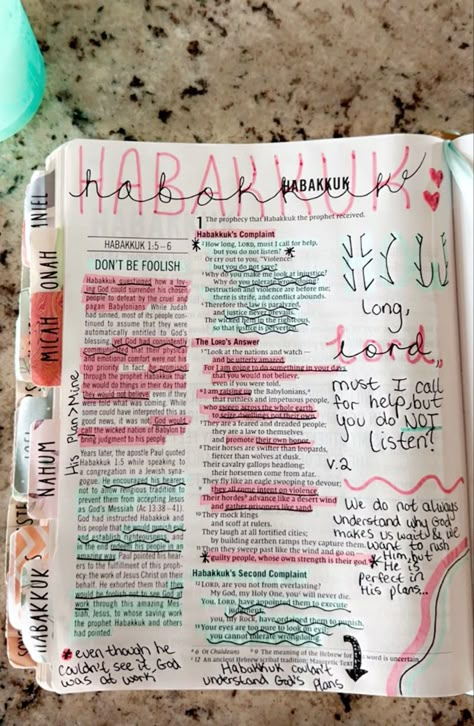 HABAKKUK
habakkuk
HABAKKUK
1 The prophecy that Habakkuk the prophet received.
HABAKKUK 1:5–6
DON'T BE FOOLISH
Habakkuk questioned how a lov-
ing God could surrender his chosen
people to defeat by the cruel and
pagan Babylonians. While Judah
had sinned, most of its people con-
tinued to assume that they were
automatically entitled to God's
blessing, yet God had consistently
communicated that their physical
and emotional comfort were not his
top priority. In fact, he promised
through the prophet Habakkuk that
he would do things in their day that
they would not believe even if they
were told what was coming. While
some could have interpreted this as
good news, it was not. God would
call the wicked nation of Babylon to
bring judgment to his people.
Years later, the apostle Paul quoted
Habakkuk 1:5 while speaking to
a congregation in a Jewish syna-
gogue. He encouraged his hearers
not to allow religious tradition to
prevent them from accepting Jesus
as God's Messiah (Ac 13:38–41).
God had instructed Habakkuk and
his people that he would punish sin
and establish righteousness, and
in the end
amazing way. Paul pointed his hear-
ers to the fulfillment of this proph-
ecy: the work of Jesus Christ on their
behalf. He exhorted them that this
would be foolish not to see God at
work through this amazing Mes-
siah, Jesus, to whose saving work
the prophet Habakkuk and others
had pointed.
His Plan > Mine
* even though he
couldn't see it, God
was at work
Habakkuk's Complaint
2 How long, LORD, must I call for help,
but you do not listen?
Or cry out to you, "Violence!"
but you do not save?
3 Why do you make me look at injustice?
Why do you tolerate wrongdoing?
Destruction and violence are before me;
there is strife, and conflict abounds.
4 Therefore the law is paralyzed,
and justice never prevails.
The wicked hem in the righteous,
so that justice is perverted.
The LORD's Answer
5 "Look at the nations and watch—
and be utterly amazed.
For I am going to do something in your days
that you would not believe,
even if you were told.
6 I am raising up the Babylonians,
that ruthless and impetuous people,
who sweep across the whole earth
to seize dwellings not their own.
7 They are a feared and dreaded people;
they are a law to themselves
and promote their own honor.
8 Their horses are swifter than leopards,
fiercer than wolves at dusk.
Their cavalry gallops headlong;
their horsemen come from afar.
They fly like an eagle swooping to devour;
9 they all come intent on violence.
Their hordes advance like a desert wind
and gather prisoners like sand.
10 They mock kings
and scoff at rulers.
They laugh at all fortified cities;
by building earthen ramps they capture them.
11 Then they sweep past like the wind and go on—
guilty people, whose own strength is their god."
Habakkuk's Second Complaint
12 LORD, are you not from everlasting?
My God, my Holy One, you will never die.
You, LORD, have appointed them to execute
judgment;
you, my Rock, have ordained them to punish.
13 Your eyes are too pure to look on evil;
you cannot tolerate wrongdoing.
a 6 Or Chaldeans b 9 The meaning of the Hebrew for word is uncertain.
12 An ancient Hebrew scribal tradition; Masoretic Text
Habakkuk couldn't
understand God's Plans
Long,
Lord,,
must I call
for help, but
you do NOT
listen?
V.2
We do not always
understand why God
makes us wait & we
want to rush
Him, but
He is
perfect in
His plans...
ONAH
MICAH
NAHUM
HABAKKUK